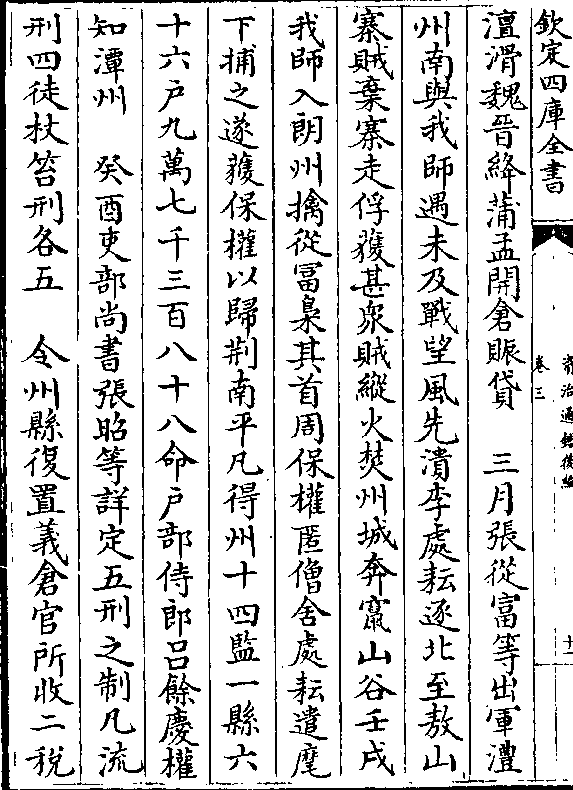 欽定四庫全書
資治通鑑後編
卷三
十一
澶滑魏晉絳蒲孟開倉賑貸　三月張從富等出軍澧
州南與我師遇未及戰望風先潰李處耘逐北至敖山
寨賊棄寨走俘獲甚衆賊縱火焚州城奔竄山谷壬戌
我師入朗州擒從富梟其首周保權匿僧舍處耘遣麾
下捕之遂獲保權以歸荆南平凡得州十四監一縣六
十六户九萬七千三百八十八命户部侍郎吕餘慶權
知潭州　癸酉吏部尚書張昭等詳定五刑之制凡流
刑四徒杖笞刑各五　令州縣復置義倉官所收二税